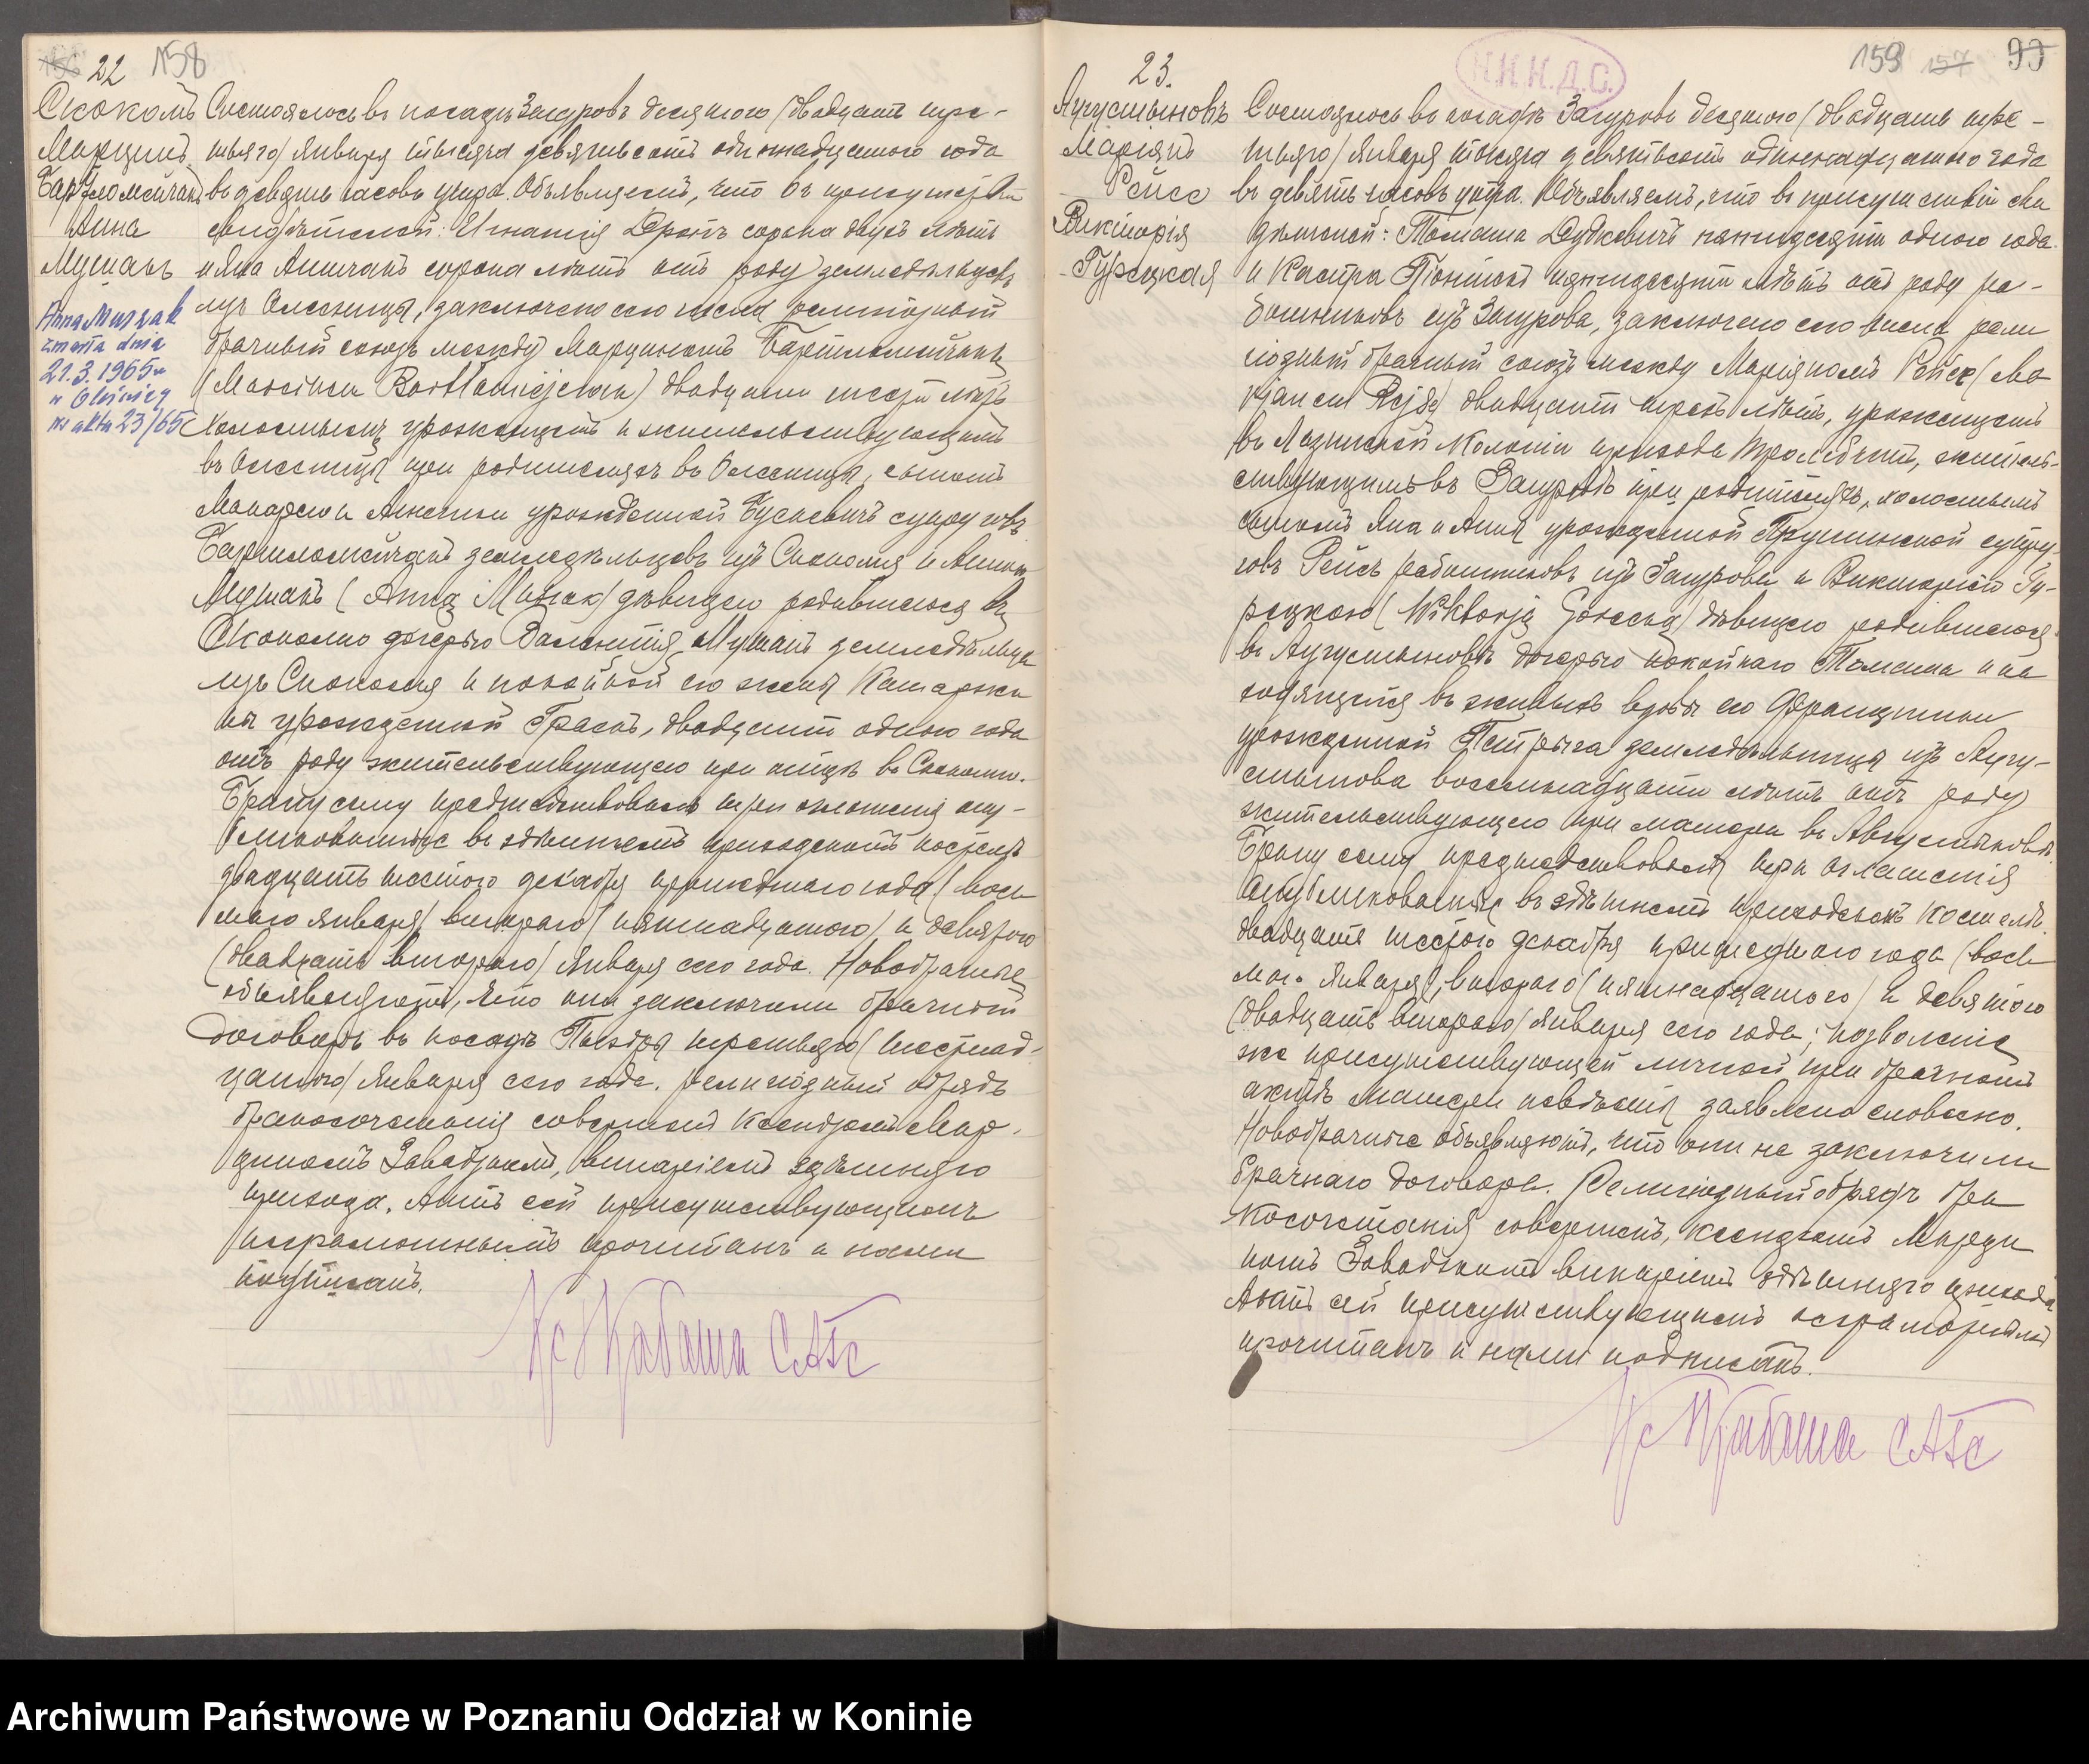 22 158
Скокомъ
Марцинъ
Бартломейчакъ
Анна
Мушакъ
Anna Muszak
zmarła dnia
21.3.1965 r
w Oleśnicy
nr aktu 23/65
Состоялось въ посадѣ Загуровъ десятого /двадцать тре-
тьяго/ Января тысяча девятьсотъ одиннадцатого года
въ девять часовъ утра. Объявляемъ, что въ присутствіи
свидѣтелей: Игнатія сорока двухъ лѣтъ
и Яна сорока лѣтъ отъ роду земледѣльцевъ
изъ Олесницы, заключено сего числа религіозный
брачный союзъ между Марциномъ Бартломейчакъ
(Marcinem Bartłomiejczak) двадцати шести лѣтъ
холостымъ, урожденцемъ и жительствующимъ
въ Олесницѣ при родителяхъ въ Олесницѣ, сыномъ
Макарія и урожденной супруговъ
Бартломейчакъ земледѣльцевъ изъ и Анною
Мушакъ (Anną Muszak) дѣвицею родившеюся въ
Скокомю дочерью Валентія Мушакъ земледѣльца
изъ Скокомя и покойной его жены Катаржи-
ны урожденной двадцати одного года
отъ роду жительствующею при отцѣ въ Скокомю.
Браку сему предшествовали три оглашенія опу-
бликованные въ здѣшнемъ приходскомъ костелѣ
двадцать шестого декабря прошедшаго года /вось-
мого Января/ второго /пятнадцатого/ и девятого
/двадцать второго/ Января сего года. Новобрачные
объявляютъ, что они заключили брачный
договоръ въ посадѣ Пыздры третьяго /шестнад-
цатого/ Января сего года. Религіозный обрядъ
бракосочетанія совершенъ Ксендзомъ Мар-
циномъ Завадзкимъ, викаріемъ здѣшняго
прихода. Актъ сей присутствующимъ
неграмотнымъ прочитанъ и нами
подписанъ.
23.
159 157 99
Н.И.Н.Д.С.
Аугустыновъ
Маріянъ
Рейсъ
Викторія
Гурецкая
Состоялось въ посадѣ Загуровъ десятого /двадцать тре-
тьяго/ Января тысяча девятьсотъ одиннадцатого года
въ девять часовъ утра. Объявляемъ, что въ присутствіи сви-
дѣтелей: Томаша Дудкевичъ пятидесяти одного года
и Каспра пятидесяти лѣтъ отъ роду ра-
ботниковъ изъ Загурова, заключено сего числа рели-
гіозный брачный союзъ между Маріяномъ Рейсъ (Ma-
rjanem Rejs) двадцати трехъ лѣтъ, урожденцемъ
въ Колоніи прихода житель-
ствующимъ въ Загуровѣ при родителяхъ, холостымъ
сыномъ Яна и Анны урожденной супру-
говъ Рейсъ работниковъ изъ Загурова и Викторіею Гу-
рецкою (Wiktorją Górecką) дѣвицею родившеюся
въ Аугустыновѣ дочерью покойнаго Томаша и на-
ходящейся въ живыхъ вдовы его Францишки
урожденной земледѣльца изъ Аугу-
стынова восемнадцати лѣтъ отъ роду
жительствующею при матери въ Августыновѣ.
Браку сему предшествовали три оглашенія
опубликованные въ здѣшнемъ приходскомъ костелѣ
двадцать шестого декабря прошедшаго года /вось-
мого Января/, второго /пятнадцатого/ и девятого
/двадцать второго/ Января сего года; позволеніе
же присутствующей лично при брачномъ
актѣ матери невѣсты заявлено словесно.
Новобрачные объявляютъ, что они не заключили
брачнаго договора. Религіозный обрядъ бра-
косочетанія совершенъ, ксендзомъ Марци-
номъ Завадзкимъ викаріемъ здѣшняго прихода
Актъ сей присутствующимъ неграмотнымъ
прочитанъ и нами подписанъ.
Archiwum Państwowe w Poznaniu Oddział w Koninie